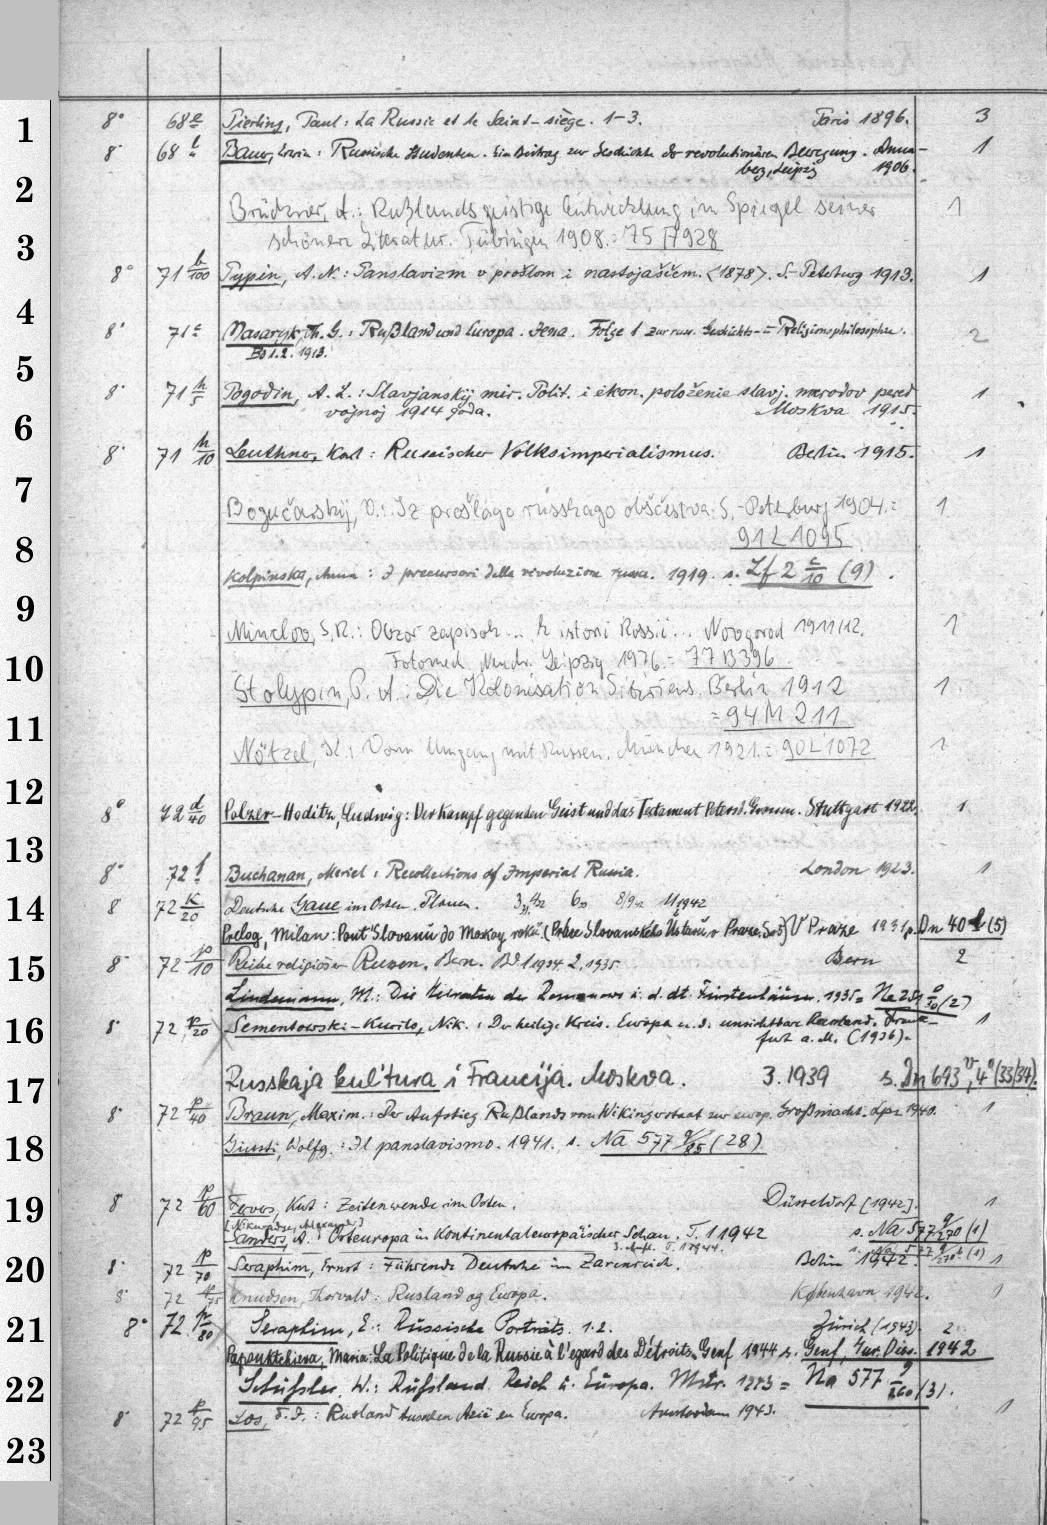 1
8° 68 e Pierling, Paul: La Russie et le Saint-siège. 1-3. Paris 1896. 3
8° 68 l Bauer, Erwin: Russische Studenten. Ein Beitrag zur Geschichte der revolutionären Bewegung. Anna- 1
berg, Leipzig 1906.
2
Brückner, A.: Rußlands geistige Entwicklung im Spiegel seiner 1
schönen Literatur. Tübingen 1908. = 75 P 7928
3
8° 71 b/100 Pypin, A. N.: Panslavizm v prošlom i nastojaščem. <1878>. S.-Peterburg 1913. 1
4
8° 71 c Masaryk, Th. G.: Rußland und Europa. Jena. Folge 1 zur russ. Geschichts- = Religionsphilosophie. 2
Bd 1.2. 1913.
5
8° 71 h/5 Pogodin, A. L.: Slavjanskij mir. Polit. i ėkon. položenie slavj. narodov pered 1
vojnoj 1914 goda. Moskva 1915.
6
8° 71 h/10 Leuthner, Karl: Russischer Volksimperialismus. Berlin 1915. 1
7
Bogučarskij, V.: Iz prošlago russkago obščestva. S.-Peterburg 1904. = 1
91 L 1095
8
Kolpinska, Anna: I precursori della rivoluzione russa. 1919. s. Zf 2 c/10 (9).
9
Minclov, S. R.: Obzor zapisok... k istorii Rossii... Novgorod 1911/12. 1
Fotomech. Neudr. Leipzig 1976. = 77 B 396
10
Stolypin, P. A.: Die Kolonisation Sibiriens. Berlin 1912 1
= 94 M 211
11
Nötzel, K.: Vom Umgang mit Russen. München 1921. = 90 L 1072 1
12
8° 72 d/40 Polzer-Hoditz, Ludwig: Der Kampf gegen den Geist und das Testament Peters d. Grossen. Stuttgart 1922. 1
13
8° 72 f Buchanan, Meriel: Recollections of Imperial Russia. London 1923. 1
14
8 72 k/20 Deutsche Gaue im Osten. Plauen.
Prelog, Milan: Pout Slovanů do Moskvy roku (Práce Slovanského Ústavu v Praze) V Praze 1931 s. Dn 40 (5)
15
8° 72 p/10 Reihe religiöser Russen. Bern. Bd. 1 1934. 2. 1935. Bern 2
Lindemann, M.: Die Heiraten der Romanows u. d. dt. Fürstenhäuser. 1935 = Ne 251 (2)
16
8° 72 p/20 Sementowski-Kurilo, Nik.: Der heilige Kreis. Europa u. d. unsichtbare Russland. Frank- 1
furt a. M. (1936).
17
Russkaja kul'tura i Francija. Moskva. 3.1939 s. Dn 693 v, 4° (33/34).
8° 72 p/40 Braun, Maxim.: Der Aufstieg Rußlands vom Wikingerstaat zur europ. Großmacht. Lpz 1940. 1
18
Giusti, Wolfg.: Il panslavismo. 1941. s. Na 577 q/85 (28)
19
8° 72 p/60 Fervers, Kurt: Zeitenwende im Osten. Düsseldorf [1942]. 1
[Nikuradse, Alexander]
Sanders, A.: Osteuropa in kontinentaleuropäischer Schau. T. 1 1942 s. Na 577 q/270 (1)
3. Aufl. T. 1 1944. s. Na 577 q/270 (1)
20
8° 72 p/70 Seraphim, Ernst: Führende Deutsche im Zarenreich. Berlin 1942. 1
8° 72 p/75 Knudsen, Thorvald: Rusland og Europa. København 1942. 1
21
8° 72 p/80 Seraphim, E.: Russische Porträts. 1.2. Zürich (1943). 2
Papouktchieva, Maria: La Politique de la Russie à l'égard des Détroits. Genf 1944 s. Genf, Jur. Diss. 1942
22
Schüssler, W.: Russland, Reich u. Europa. Mstr. 1943 = Na 577 q/260 (3).
8° 72 p/95 Los, S. I.: Rusland tusschen Azië en Europa. Amsterdam 1943. 1
23